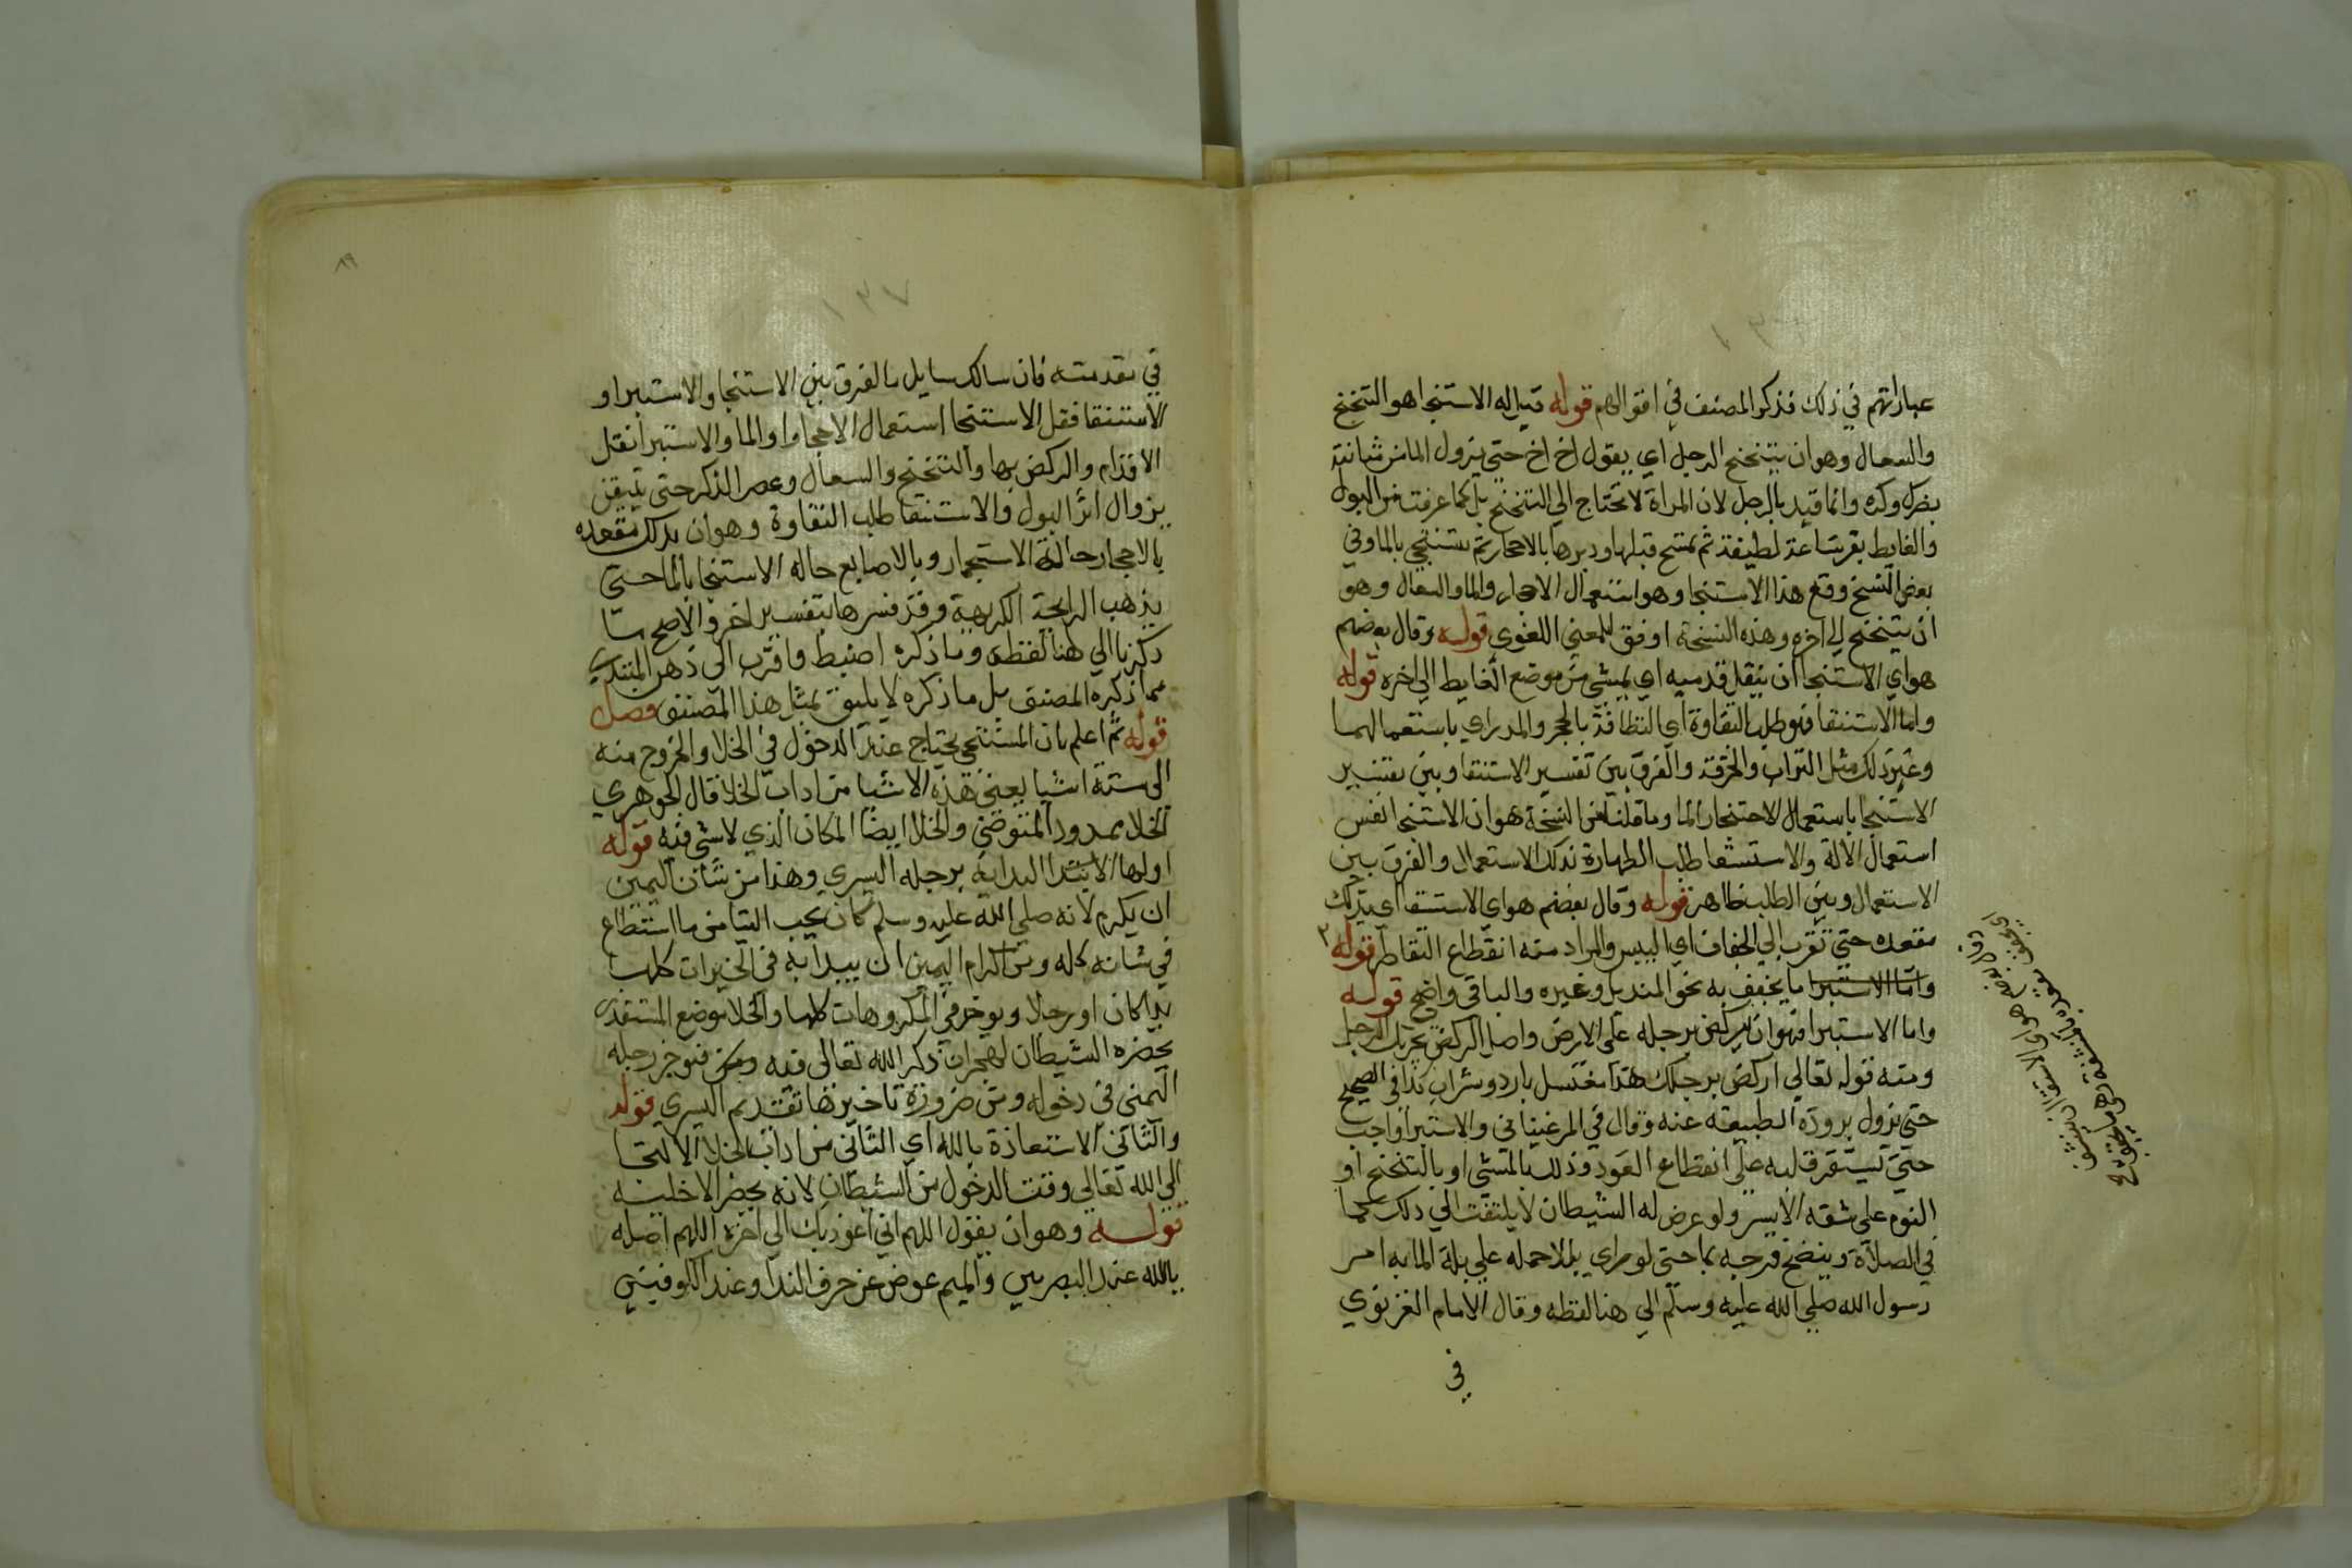 عباراتهم في ذلك فذكر المصنف في اقوالهم قوله قيل له الاستنجا هو التنحنح
والسعال وهو ان يتنحنح الرجل اي يقول اخ اخ حتى يزول الما من مثانته
وانما قيد بالرجل لان المراة لا تحتاج الي التنحنح بل كما عرفت من البول
والغايط ساعة لطيفة ثم تمسح قبلها ودبرها بالاحجار ثم تستنجي بالما وفي
بعض النسخ وقع هذا الاستنجا وهو استعمال الاحجار والما والسعال وهو
ان يتنحنح الي اخره وهذه النسخة اوفق للمعني اللغوي قوله وقال بعضهم
هو اي الاستنجا ان ينقل قدميه اي يمشي من موضع الغايط الي اخره قوله
واما الاستنقا فهو طلب النقاوة اي النظافة بالحجر والمدر اي باستعمالهما
وغير ذلك مثل التراب والخرقة والفرق بين تفسير الاستنقا وبين تفسير
الاستنجا باستعمال الاحجار والما وما قلنا من النسخة هو ان الاستنجا نفس
استعمال الالة والاستنقا طلب الطهارة بذلك الاستعمال والفرق بين
الاستعمال وبين الطلب ظاهر قوله وقال بعضهم هو اي الاستنقا اي يدلك
مقعده حتى تقرب الي الجفاف اي اليبس والمراد منه انقطاع التقاطر قوله
واما الاستبرا ما يخفف به نحو المنديل وغيره والباقي واضح قوله
واما الاستبرا فهو ان يركض برجله على الارض واصل الركض تحريك الرجل
ومنه قوله تعالي اركض برجلك هذا مغتسل بارد وشراب كذا في الصحيح
حتى تزول برودة الطبيعة عنه وقال في المرغيناني والاستبرا واجب
حتى يستقر قلبه على انقطاع العود وذلك بالمشي او بالتنحنح او
النوم علي شقه الايسر ولو عرض له الشيطان لا يلتفت الي ذلك كما
في الصلاة وينضح فرجه بما حتى لو راي بللا حمله علي بلة الما به امر
رسول الله صلي الله عليه وسلم الي هنا لفظه وقال الامام الغزنوي
في
في مقدمته فان سالك سايل ما الفرق بين الاستنجا والاستبرا و
الاستنقا فقل الاستنجا استعمال الاحجار او الما والاستبرا نقل
الاقدام والركض بها والتنحنح والسعال وعصر الذكر حتى يتيقن
بزوال اثر البول والاستنقا طلب النقاوة وهو ان يدلك مقعده
بالاحجار حالة الاستجمار وبالاصابع حالة الاستنجا بالما حتى
يذهب الرايحة الكريهة وقد فسرها بتفسير اخر والاصح ما
ذكرنا الي هنا لفظه وما ذكره اضبط واقرب الى ذهن المبتدي
مما ذكره المصنف بل ما ذكره لا يليق بمثل هذا المصنف فصل
قوله ثم اعلم بان المستنجي يحتاج عند الدخول في الخلا والخروج منه
الى ستة اشيا يعني هذه الاشيا من اداب الخلا قال الجوهري
الخلا ممدود المتوضي والخلا ايضا المكان الذي لا شي فيه قوله
اولها الابتدا البداية برجله اليسري وهذا من شان اليمين
ان يكرم لانه صلي الله عليه وسلم كان يحب التيامن ما استطاع
في شانه كله ومن اكرام اليمين ان يبدا به في الخيرات كلها
يدا كان او رجلا ويوخر في المكروهات كلها والخلا موضع المستقذر
يحضره الشيطان لهجران ذكر الله تعالى فيه فيوخر رجله
اليمنى في دخوله ومن ضرورة تاخيرها تقديم اليسري قوله
والثاني الاستعاذة بالله اي الثاني من اداب الخلا الالتجا
الي الله تعالي وقت الدخول من الشيطان لانه يحضر الاخلية
قوله وهو ان يقول اللهم اني اعوذ بك الي اخره اللهم اصله
يا الله عند البصريين والميم عوض عن حرف الندا وعند الكوفيين